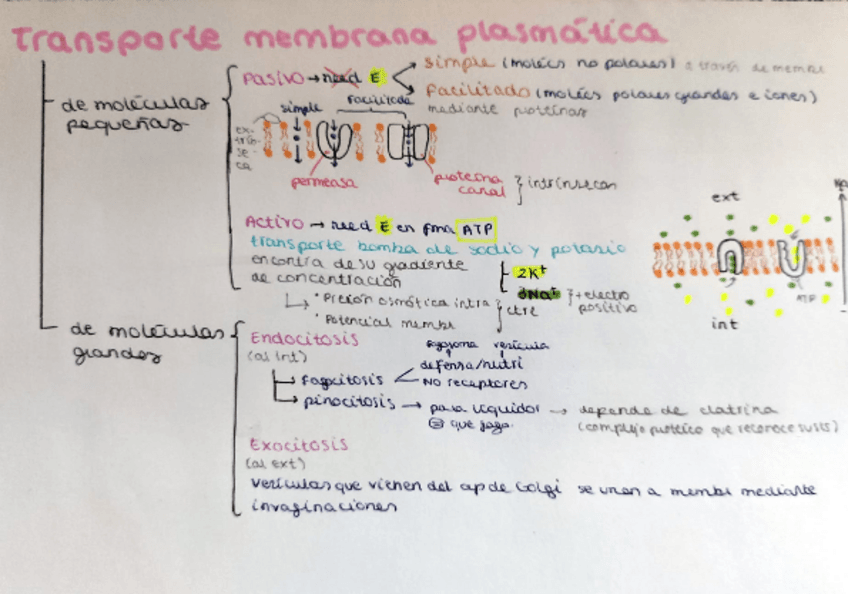 Transporte membrana plasmática
de moléculas pequeñas
Pasivo → need E
simple (molécs no polares) a través de membr
Facilitado (molécs polares grandes e iones)
mediante proteínas
simple
Facilitado
permeasa
proteína canal
intrínsecan
Activo → need E en fma ATP
transporte bomba de sodio y potasio
encontra de su gradiente
de concentración
2K+
3Na+
+ electro positivo
· Presión osmótica intra
· Potencial membr
ctre
ext
int
ATP
de moléculas grandes
Endocitosis
(al int)
fagosoma vesícula
fagocitosis
defensa/nutri
NO receptores
pinocitosis → para líquidor → depende de clatrina
que fago.
(complejo proteico que reconoce susts)
Exocitosis
(al ext)
vesículas que vienen del ap de Golgi se unen a membr mediante
invaginaciones